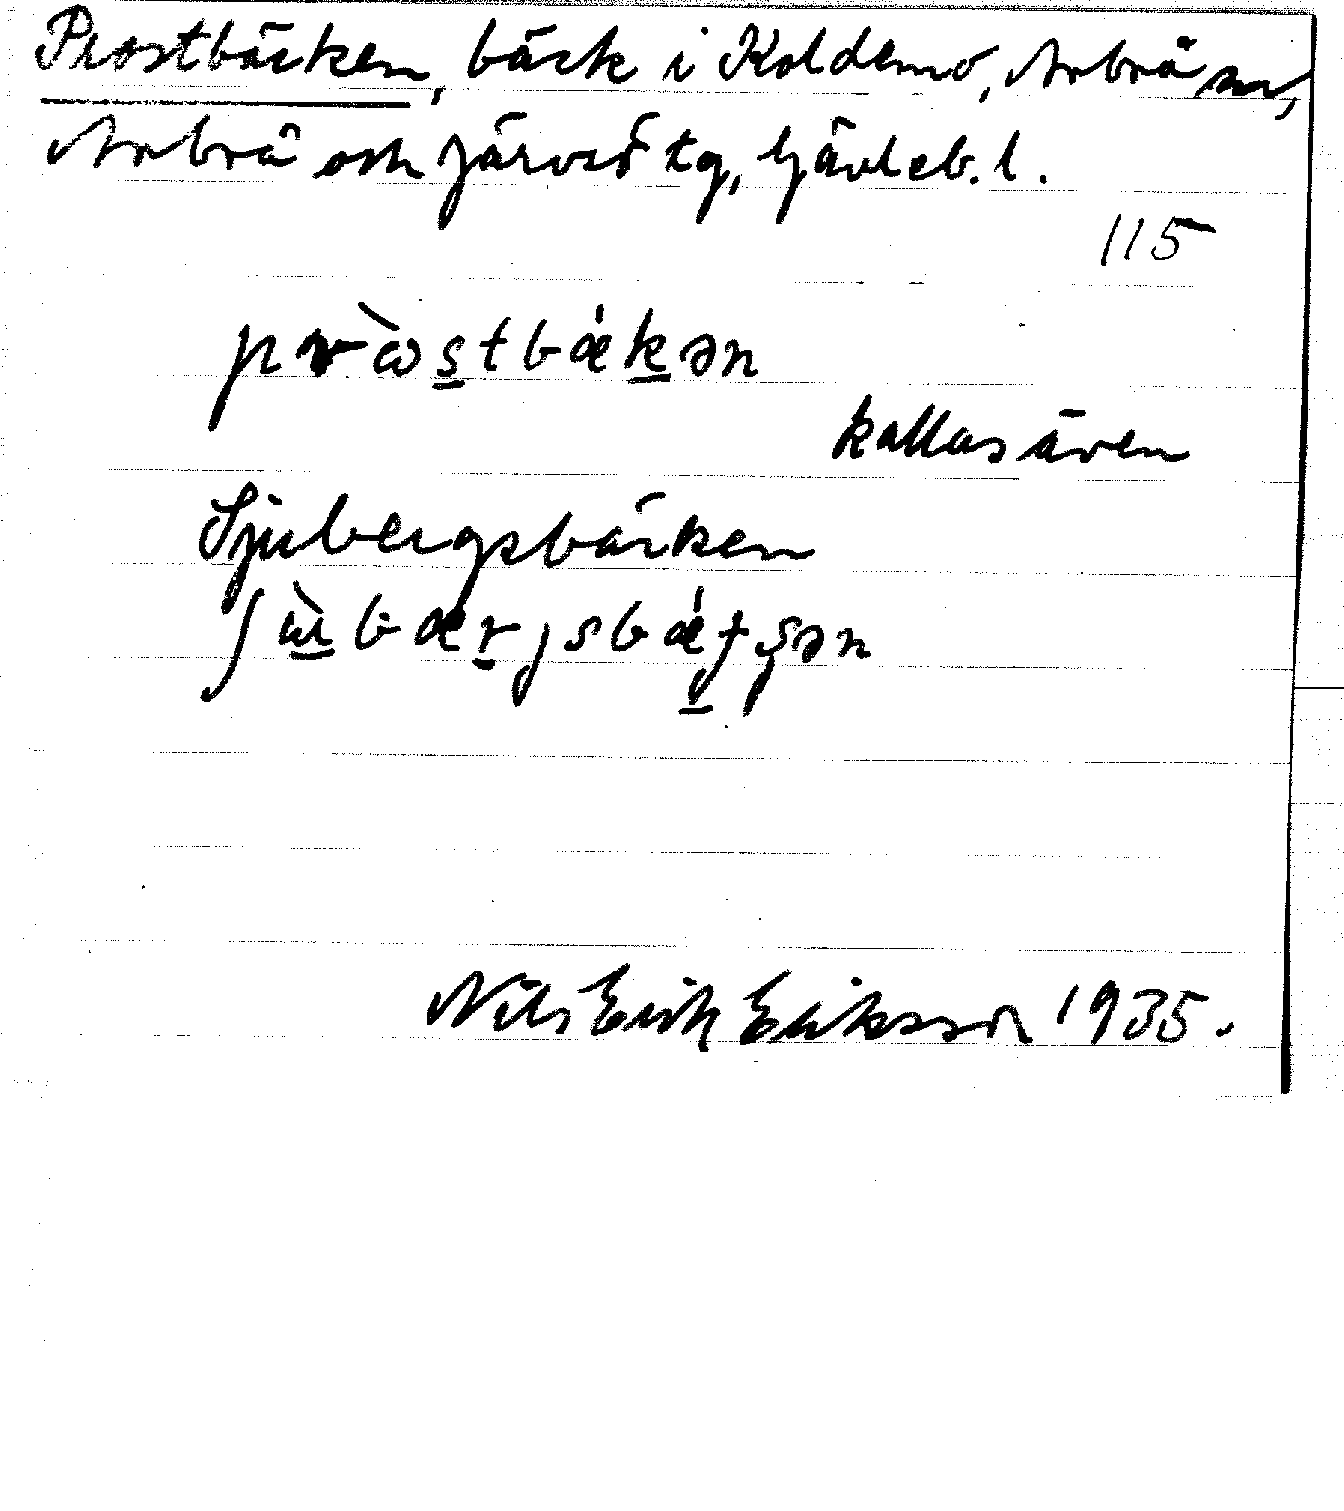 Prostbäcken, bäck i Koldemo, Arbrå sn,
Arbrå och Järvsö tg, Gävleb. l.
115
pròstbǽkən
kallas även
Sjubergsbäcken
ʃùbærjsbǽtʂən
Nils Erik Eriksson 1935.